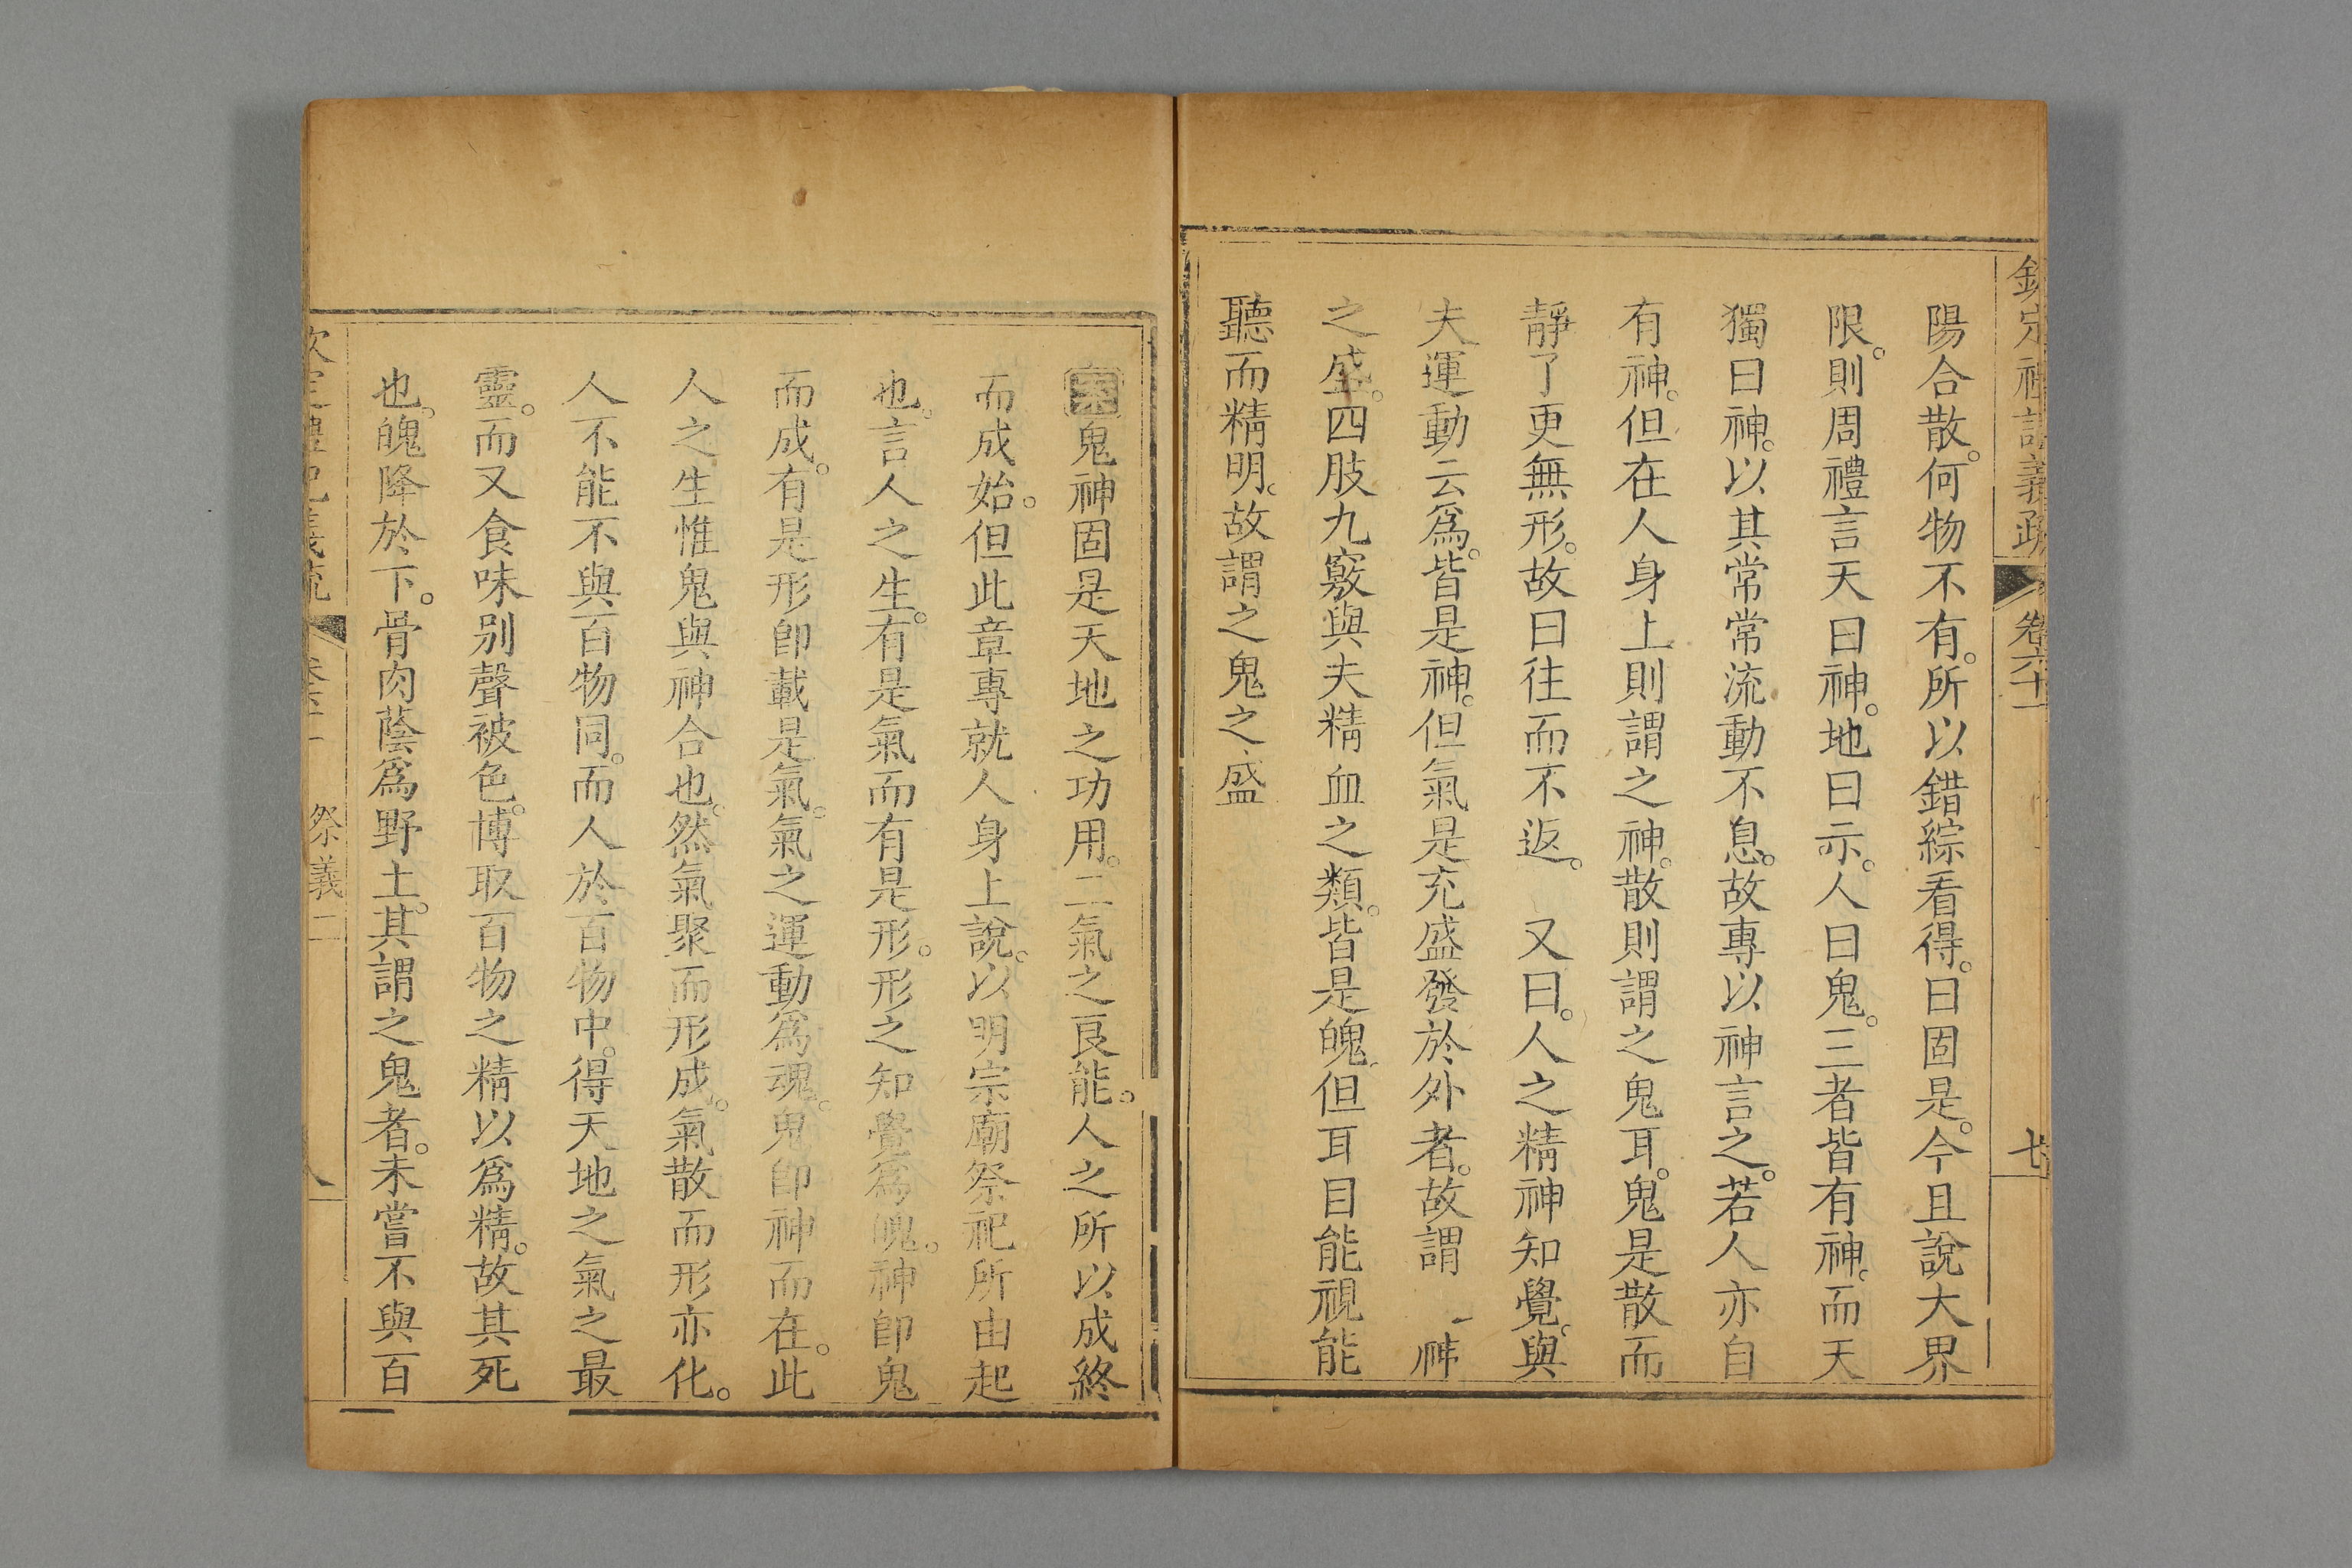 欽定禮記義疏 卷六十一 七
陽合散。何物不有。所以錯綜看得。曰固是。今且說大界
限。則周禮言天曰神。地曰示。人曰鬼。三者皆有神。而天
獨曰神。以其常常流動不息。故專以神言之。若人亦自
有神。但在人身上則謂之神。散則謂之鬼耳。鬼是散而
靜了更無形。故曰往而不返。 又曰。人之精神知覺。與
夫運動云爲。皆是神。但氣是充盛發於外者。故謂 神
之盛。四肢九竅與夫精血之類。皆是魄。但耳目能視能
聽而精明。故謂之鬼之盛
案鬼神固是天地之功用。二氣之良能。人之所以成終
而成始。但此章專就人身上說。以明宗廟祭祀所由起
也。言人之生。有是氣而有是形。形之知覺爲魄。神卽鬼
而成。有是形卽載是氣。氣之運動爲魂。鬼卽神而在。此
人之生惟鬼與神合也。然氣聚而形成。氣散而形亦化。
人不能不與百物同。而人於百物中。得天地之氣之最
靈。而又食味別聲被色。博取百物之精以爲精。故其死
也。魄降於下。骨肉蔭爲野土。其謂之鬼者。未嘗不與百
欽定禮記義疏 祭義二